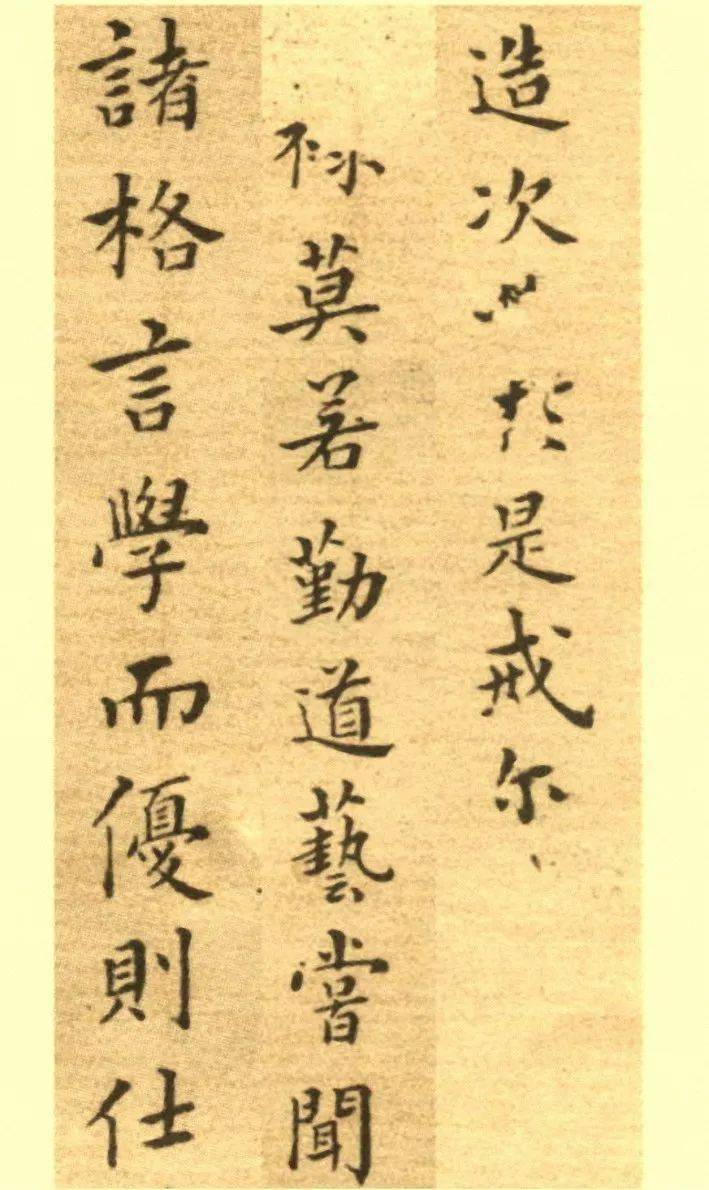 造次於是戒尔
莫若勤道藝嘗聞
諸格言學而優則仕